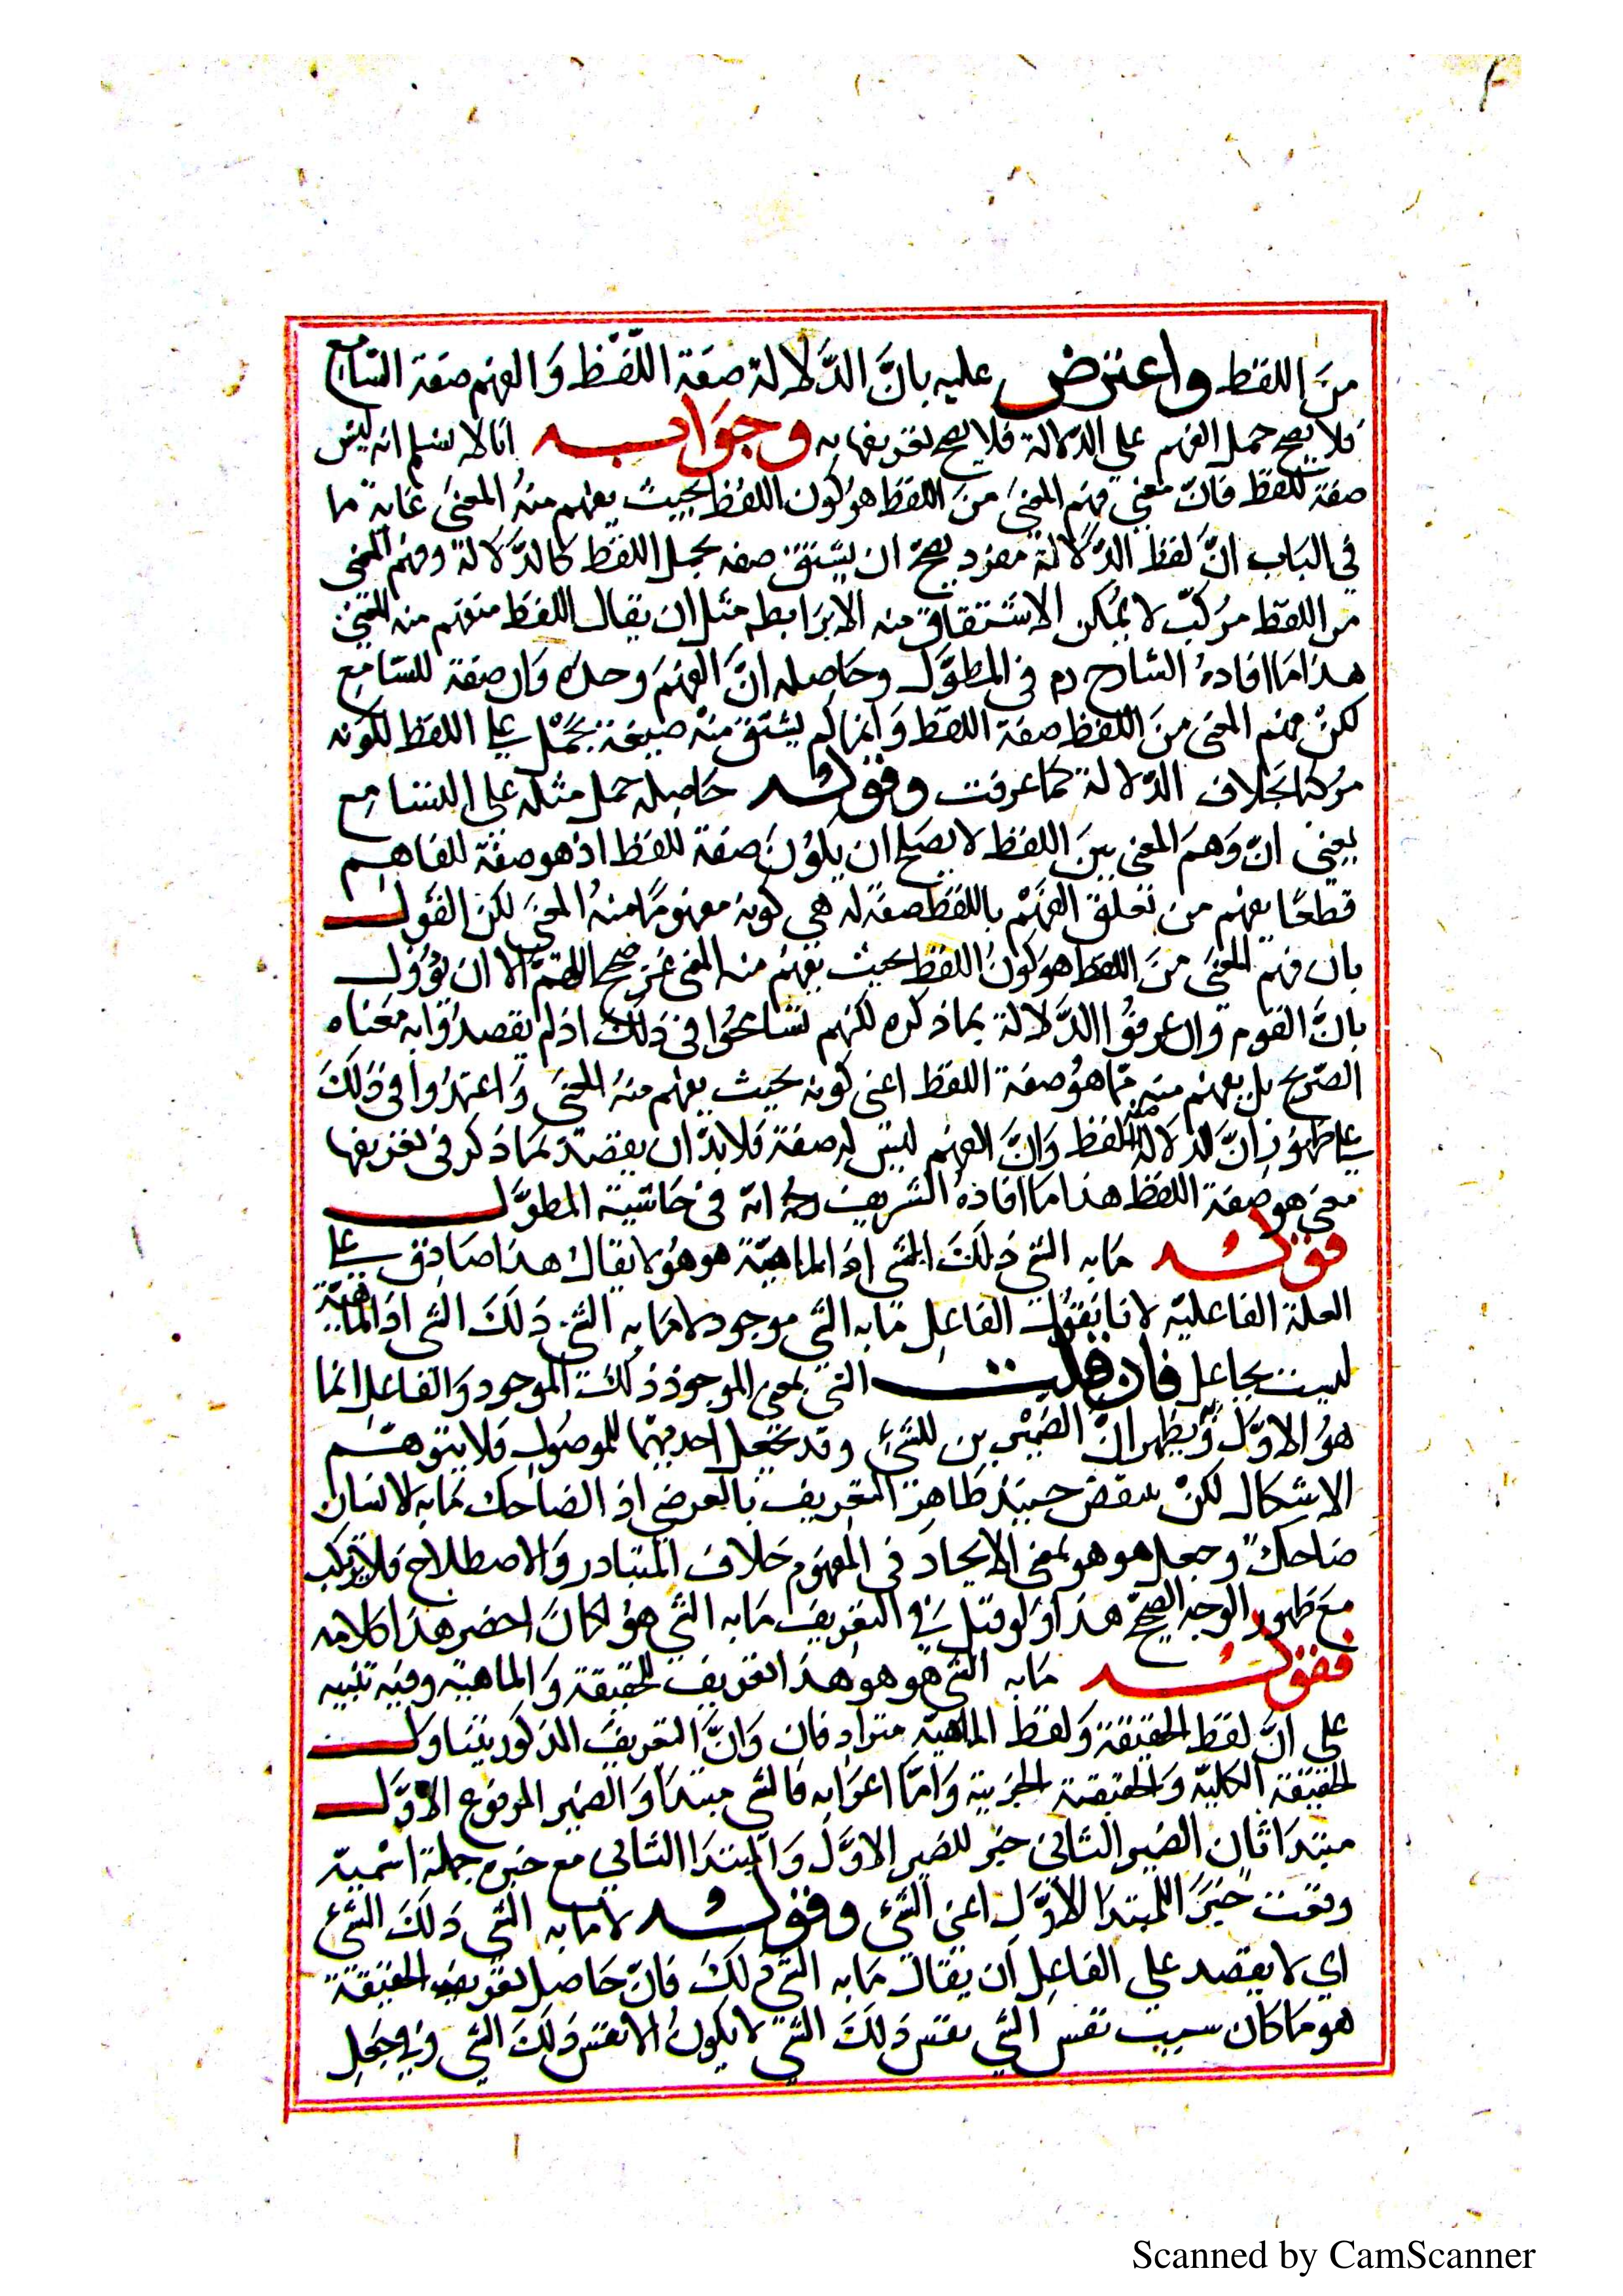 من اللفظ واعترض عليه بانَّ الدَّلالة صفة اللَّفظ وَالفهم صفة السّامع
فلا يصح حمل الفهم على الدلالة فلا يصح تعريفها به وجوابه انا لا نسلم انه ليس
صفة للفظ فانّ معنى فهم المعنى منَ اللفظ هو كون اللفظ بحيث يفهم منهُ المعنى غاية ما
في الباب انَّ لفظ الدَّلالة مفرد يصحّ ان يشتق صفة يحمل اللفظ كالدَّلالة وفهم المعنى
من اللفظ مركبّ لا يمكن الاشتقاق منه الا برابطه مثل ان يقال اللفظ منفهم منه المعنى
هذا ما افادهُ الشارح رم في المطوَّل وحاصله انَّ الفهمَ وحده وَان صفة للسّامع
لكنْ فهم المعنى منَ اللفظ صفة اللفظ وَانما لم يشتق منْه صيغة تحمل على اللفظ لكونه
مركبا بخلاف الدّلالة كما عرفت وقوله حاصله حمل مثله على التسامع
يعنى انّ وَهم المعنى بينَ اللفظ لا يصحّ ان يكوُنَ صفة للفظ اذ هو صفة للفاهم
قطعًا يفهم من تعلق الفهمْ باللفظ صفة له هي كونهُ مفهومًا منهُ المعنىَ لكن القوَل
بان فهم المعنَى منَ اللفظ هوَ كونُ اللفظ بحيث يفهمُ منه المعنى غير صحيح اللهمّ الا ان يؤوَّل
بانَّ القوم وان عرفوُا الدَّلالة بما ذكره لكنهم تسَامحُوا في ذلكَ اذ لم يقصدوُا به مَعناه
الصّريح بل يفهم منه مّا هوُ صفة اللفظ اعنى كونه بحيث يفهم منهُ المعنَى وَاعتمدُوا في ذلكَ
على ظهوُر انَّ الدلالة صفة اللفظ وَانَّ الفهم ليس له صفة فلا بدّ ان يقصد بمَا ذكر في تعريفها
معنى هو صفة اللفظ هذا ما افادهُ الشريف رحمه الله في حَاشية المطوَّل
قوله مَا به الشئ ذلكَ الشئ اذ الماهيّة هو هوُ لا يقال هذا صَادق على
العلة الفاعليّه لانا نَقوُل الفاعل مَابه الشئ موجود لا مَا به الشئ ذلكَ الشئ اذ المَاهيّة
ليست بجاعل فان قلت الشئ بمعنى الموجود ذلكَ الموجود وَالفاعل انما
هوُ الاوَّل وَيظهر انَّ الضميْرين للشئ وقد يجعل احديهما للموصوُل فلا يتوهّم
الاشكال لكنْ ينقض حينئذ ظاهر التعريف بالعرضى اذ الضاحك مَا به الانسان
ضاحك وجعل هو هو بمعنى الايجاد في المفهوم خلاف المتبادر وَالاصطلاح فلا يرتكب
معَ ظهور الوجه الصحيحّ هذا وَلو قيل في التعريف مَا به الشئ هوُ لكانَ اخضر هذا كلامه
فقوله مَا به الشئ هو هوَ هذا تعريف للحقيقة وَالماهية وفيه تنبيه
على انَّ لفظ الحقيقة وَلفظ الماهيّه مترادفان وَانَّ التعريفَ المذكور يتناوَل
الحقيقة الكليّه وَالحقيقة الجزئية وَامّا اعرابه فالشئ مبتدا وَالضمير المرفوع الاوَّل
مبتدَا ثان الضمير الثانى خبر للضمير الاوَّل وَالمبتدا الثانى مع خبره جملة اسْمية
وقعَت خبرَ المبتدا الاوَّل اعنى الشئ وقوله لا مَا به الشئ ذلكَ الشئ
اي لا يقصد على الفاعل اَن يقال مَا به الشئ ذلكَ فانّ حَاصل تعريف الحقيقة
هو ما كان سبب نفس الشئ نفس ذلكَ الشئ لا يكونُ الا نفس ذلكَ الشئ وَفي جعل
Scanned by CamScanner